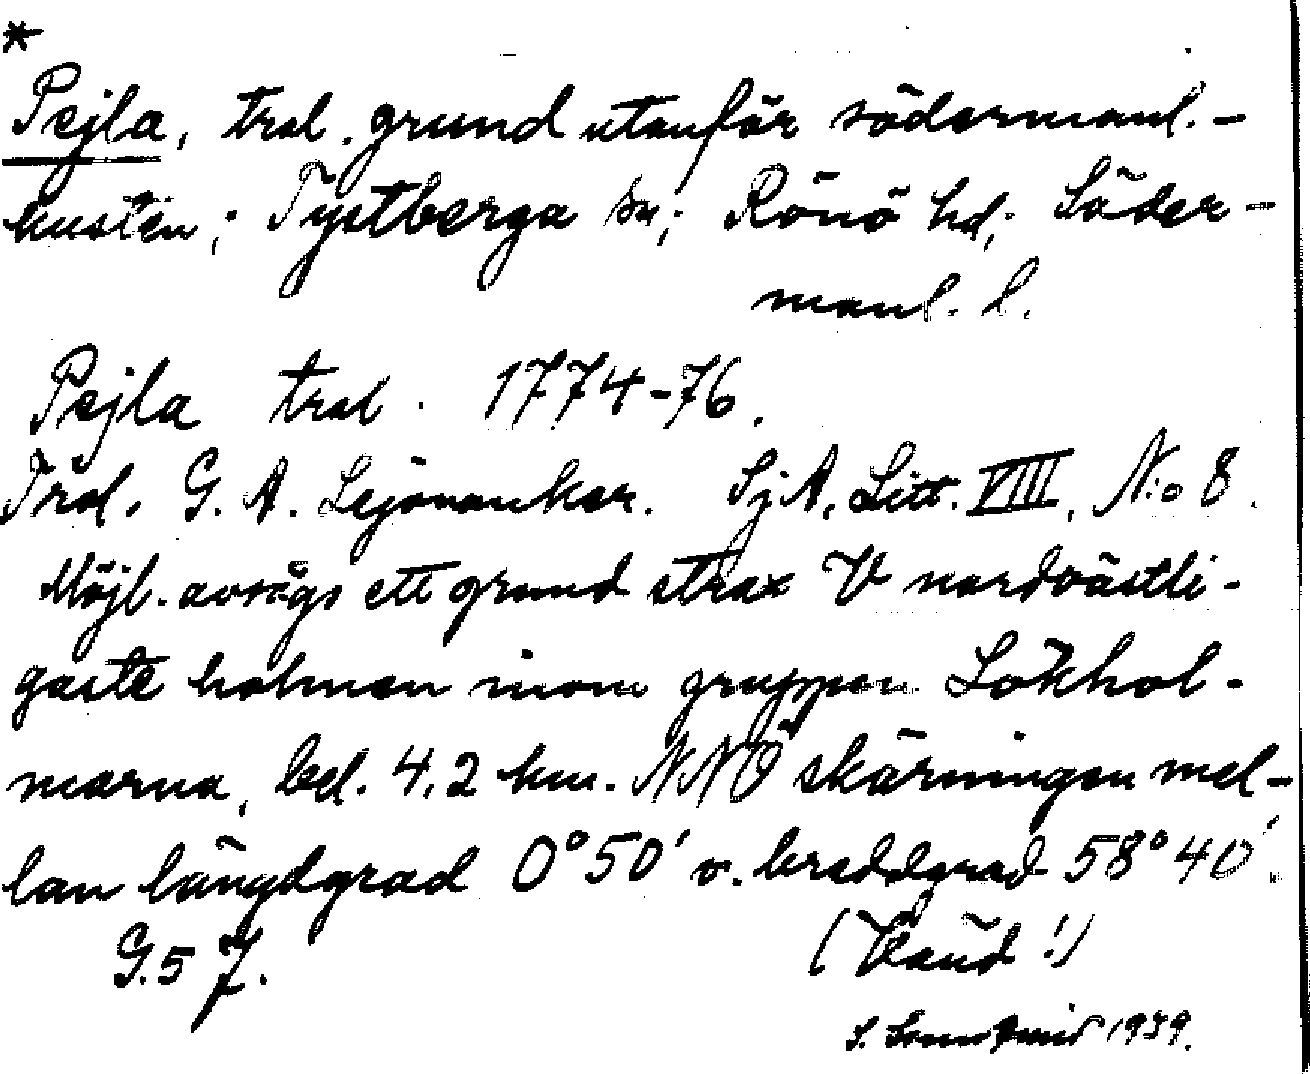 *
Pejla, trol. grund utanför södermanl.-
kusten; Tystberga sn; Rönö hd; Söder-
manl. l.
Pejla trol. 1774-76.
Förd. G. A. Lejonanker. SjA, Litt. VIII, N:o 8.
Möjl. avsågs ett grund strax V nordvästli-
gaste holmen inom gruppen Lökhol-
marna, bel. 4,2 km. NNÖ skärningen mel-
lan längdgrad 0°50' o. breddgrad 58°40'.
G.5 J.
(Vänd!)
S. 1939.